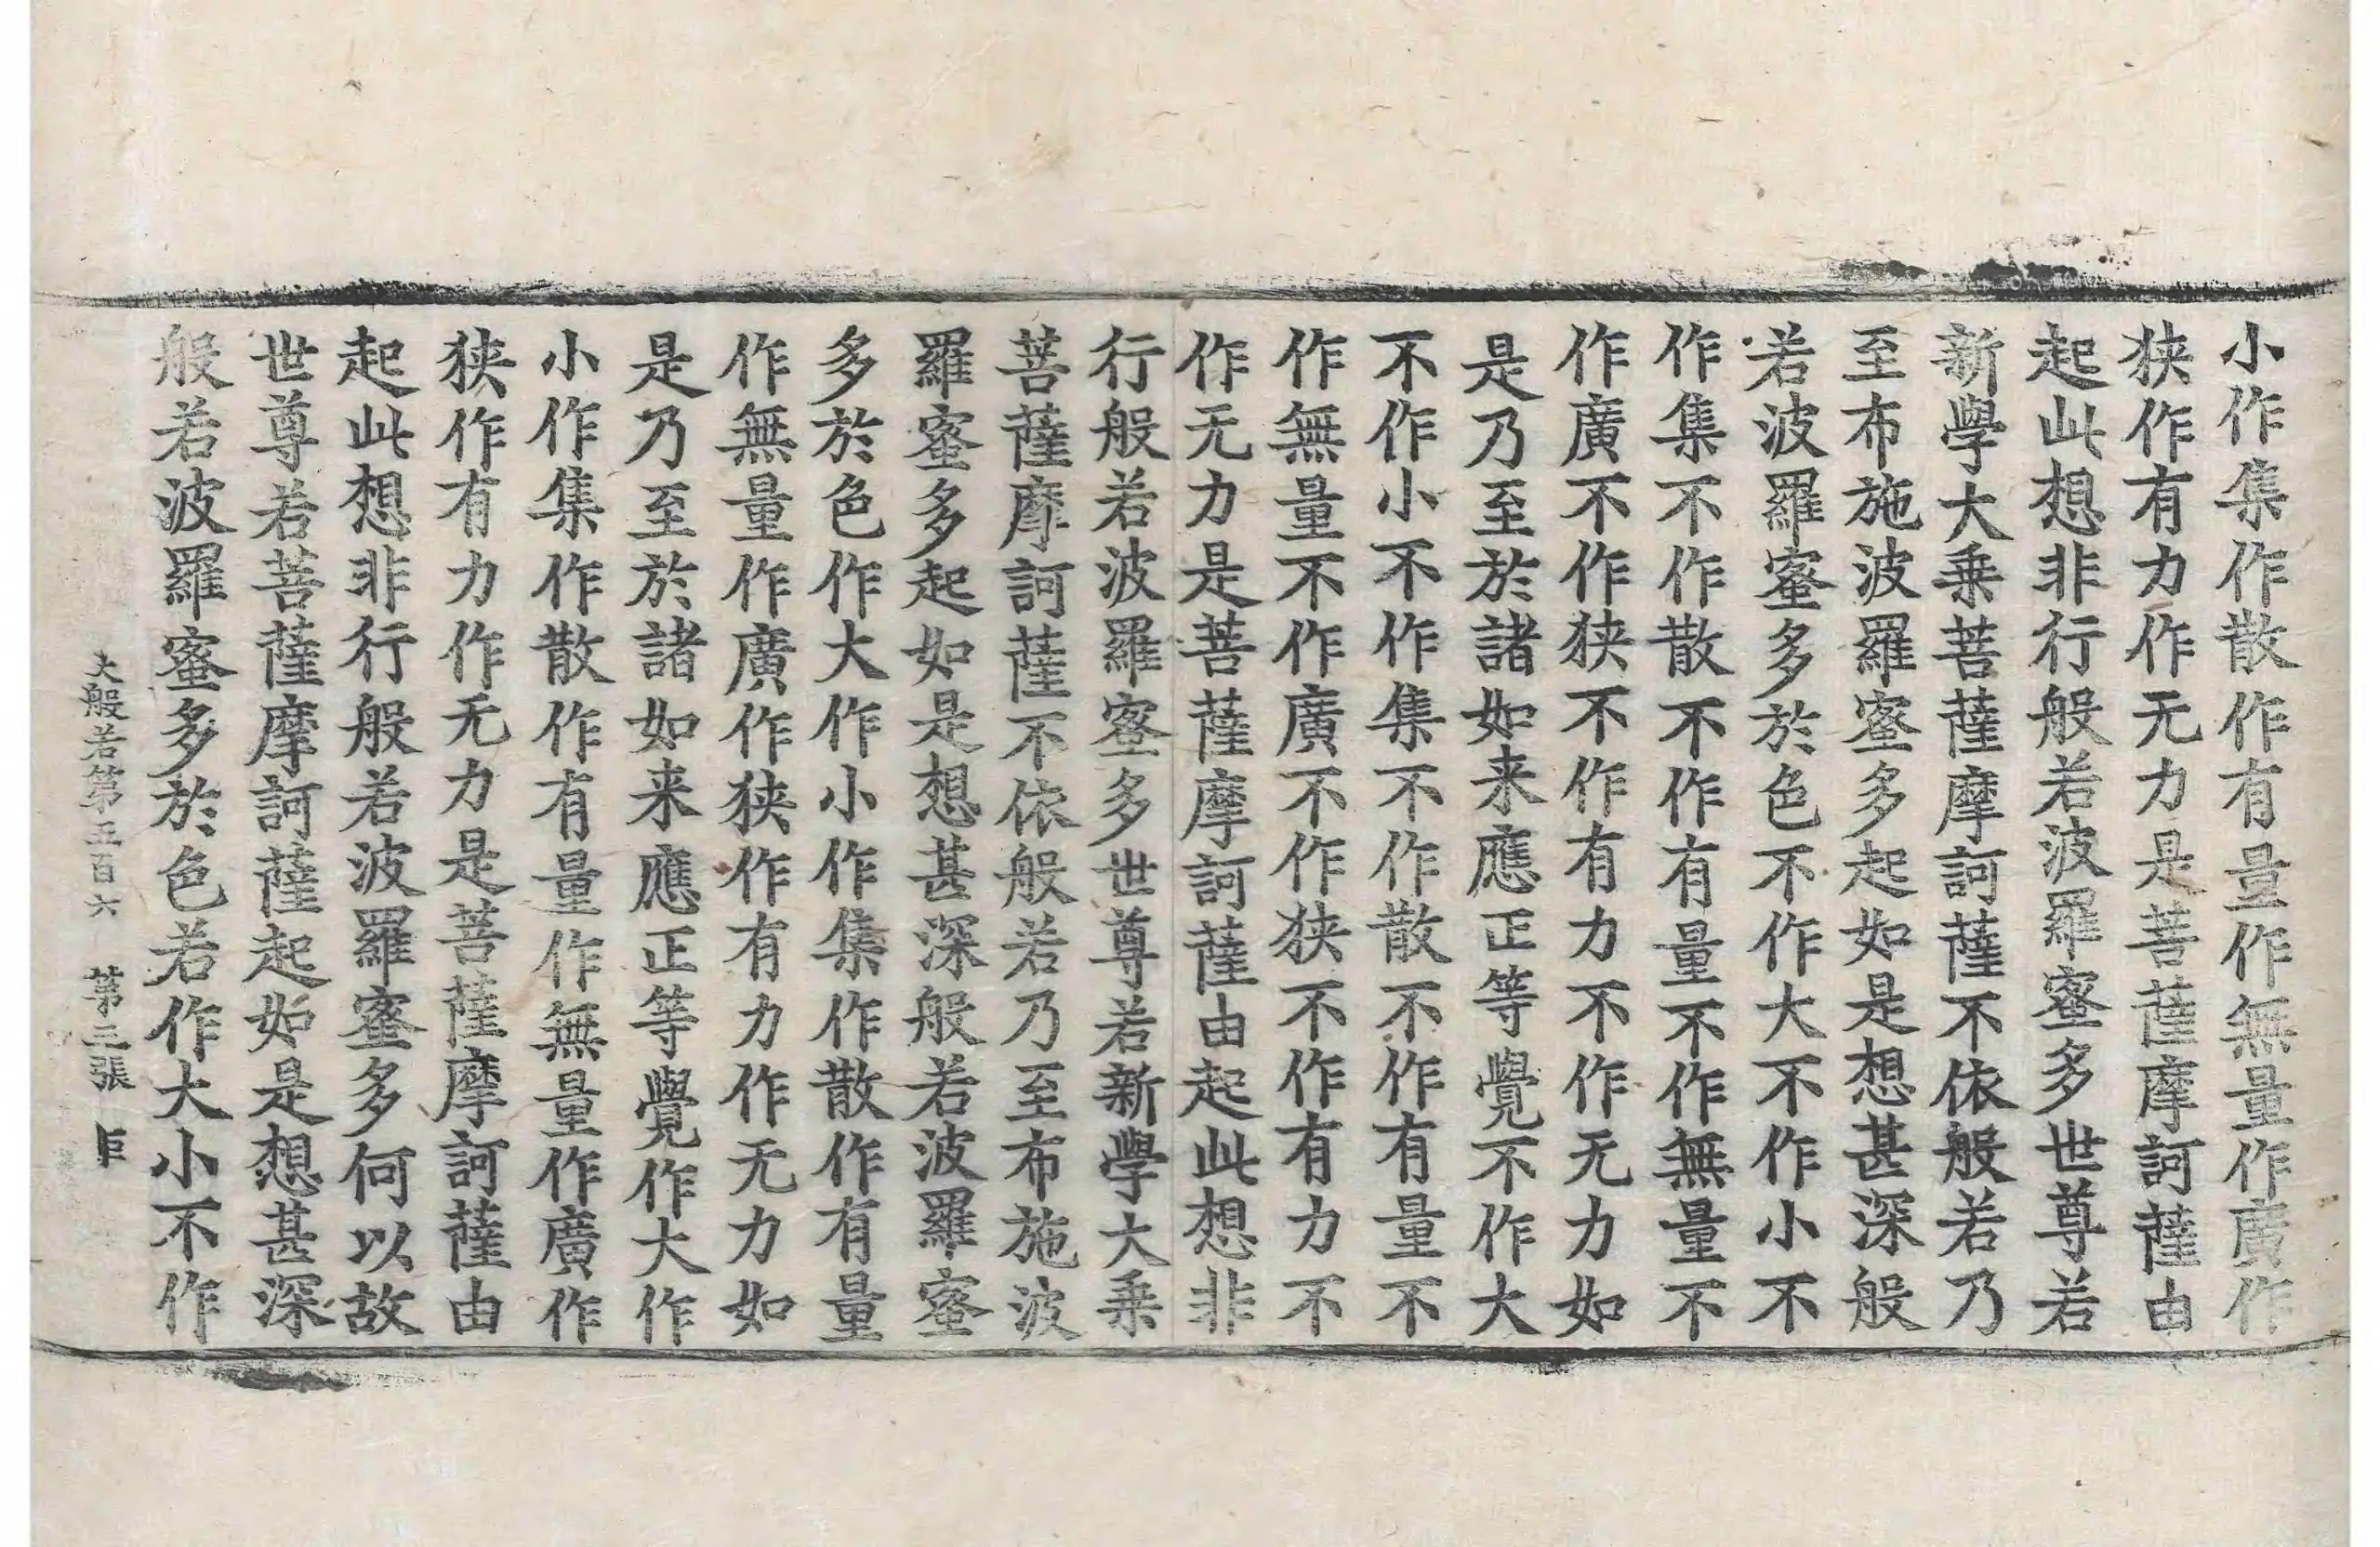 小作集作散作有量作無量作廣作
狹作有力作无力是菩薩摩訶薩由
起此想非行般若波羅蜜多世尊若
新學大乗菩薩摩訶薩不依般若乃
至布施波羅蜜多起如是想甚深般
若波羅蜜多於色不作大不作小不
作集不作散不作有量不作無量不
作廣不作狹不作有力不作无力如
是乃至於諸如来應正等覺不作大
不作小不作集不作散不作有量不
作無量不作廣不作狹不作有力不
作无力是菩薩摩訶薩由起此想非
行般若波羅蜜多世尊若新學大乗
菩薩摩訶薩不依般若乃至布施波
羅蜜多起如是想甚深般若波羅蜜
多於色作大作小作集作散作有量
作無量作廣作狹作有力作无力如
是乃至於諸如来應正等覺作大作
小作集作散作有量作無量作廣作
狹作有力作无力是菩薩摩訶薩由
起此想非行般若波羅蜜多何以故
世尊若菩薩摩訶薩起如是想甚深
般若波羅蜜多於色若作大小不作
大般若第五百六 第三張 巨